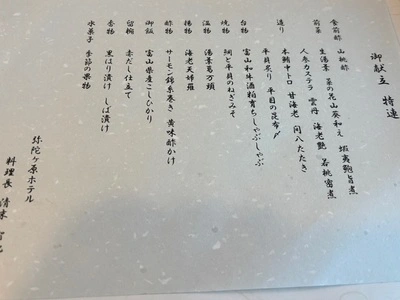 御献立 特選
食前酢 山桃酢
前菜 生湯葉 菜の花山葵和え 蝦夷鮑旨煮
人参カステラ 雲丹 海老艶煮 若桃蜜煮
造り 本鮪中トロ 甘海老 間八たたき
平貝炙り 平目の昆布〆
台物 富山和牛酒粕育ちしゃぶしゃぶ
焼物 鰆と平貝のねぎみそ
温物 湯葉万頭
揚物 海老天婦羅
酢物 サーモン錦糸巻き 黄味酢かけ
御飯 富山県産こしひかり
留椀 赤だし仕立て
香物 黒はり漬け しば漬け
水菓子 季節の果物
弥陀ヶ原ホテル
料理長